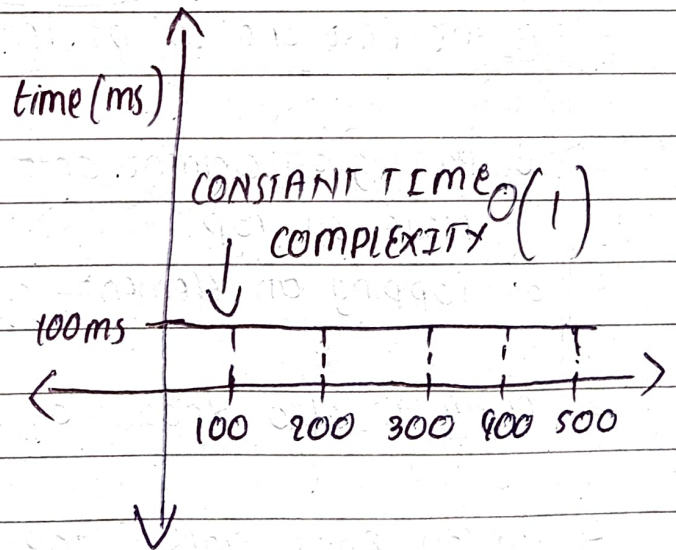 time(ms)
CONSTANT TIME O(1)
COMPLEXITY
100ms
100 200 300 400 500